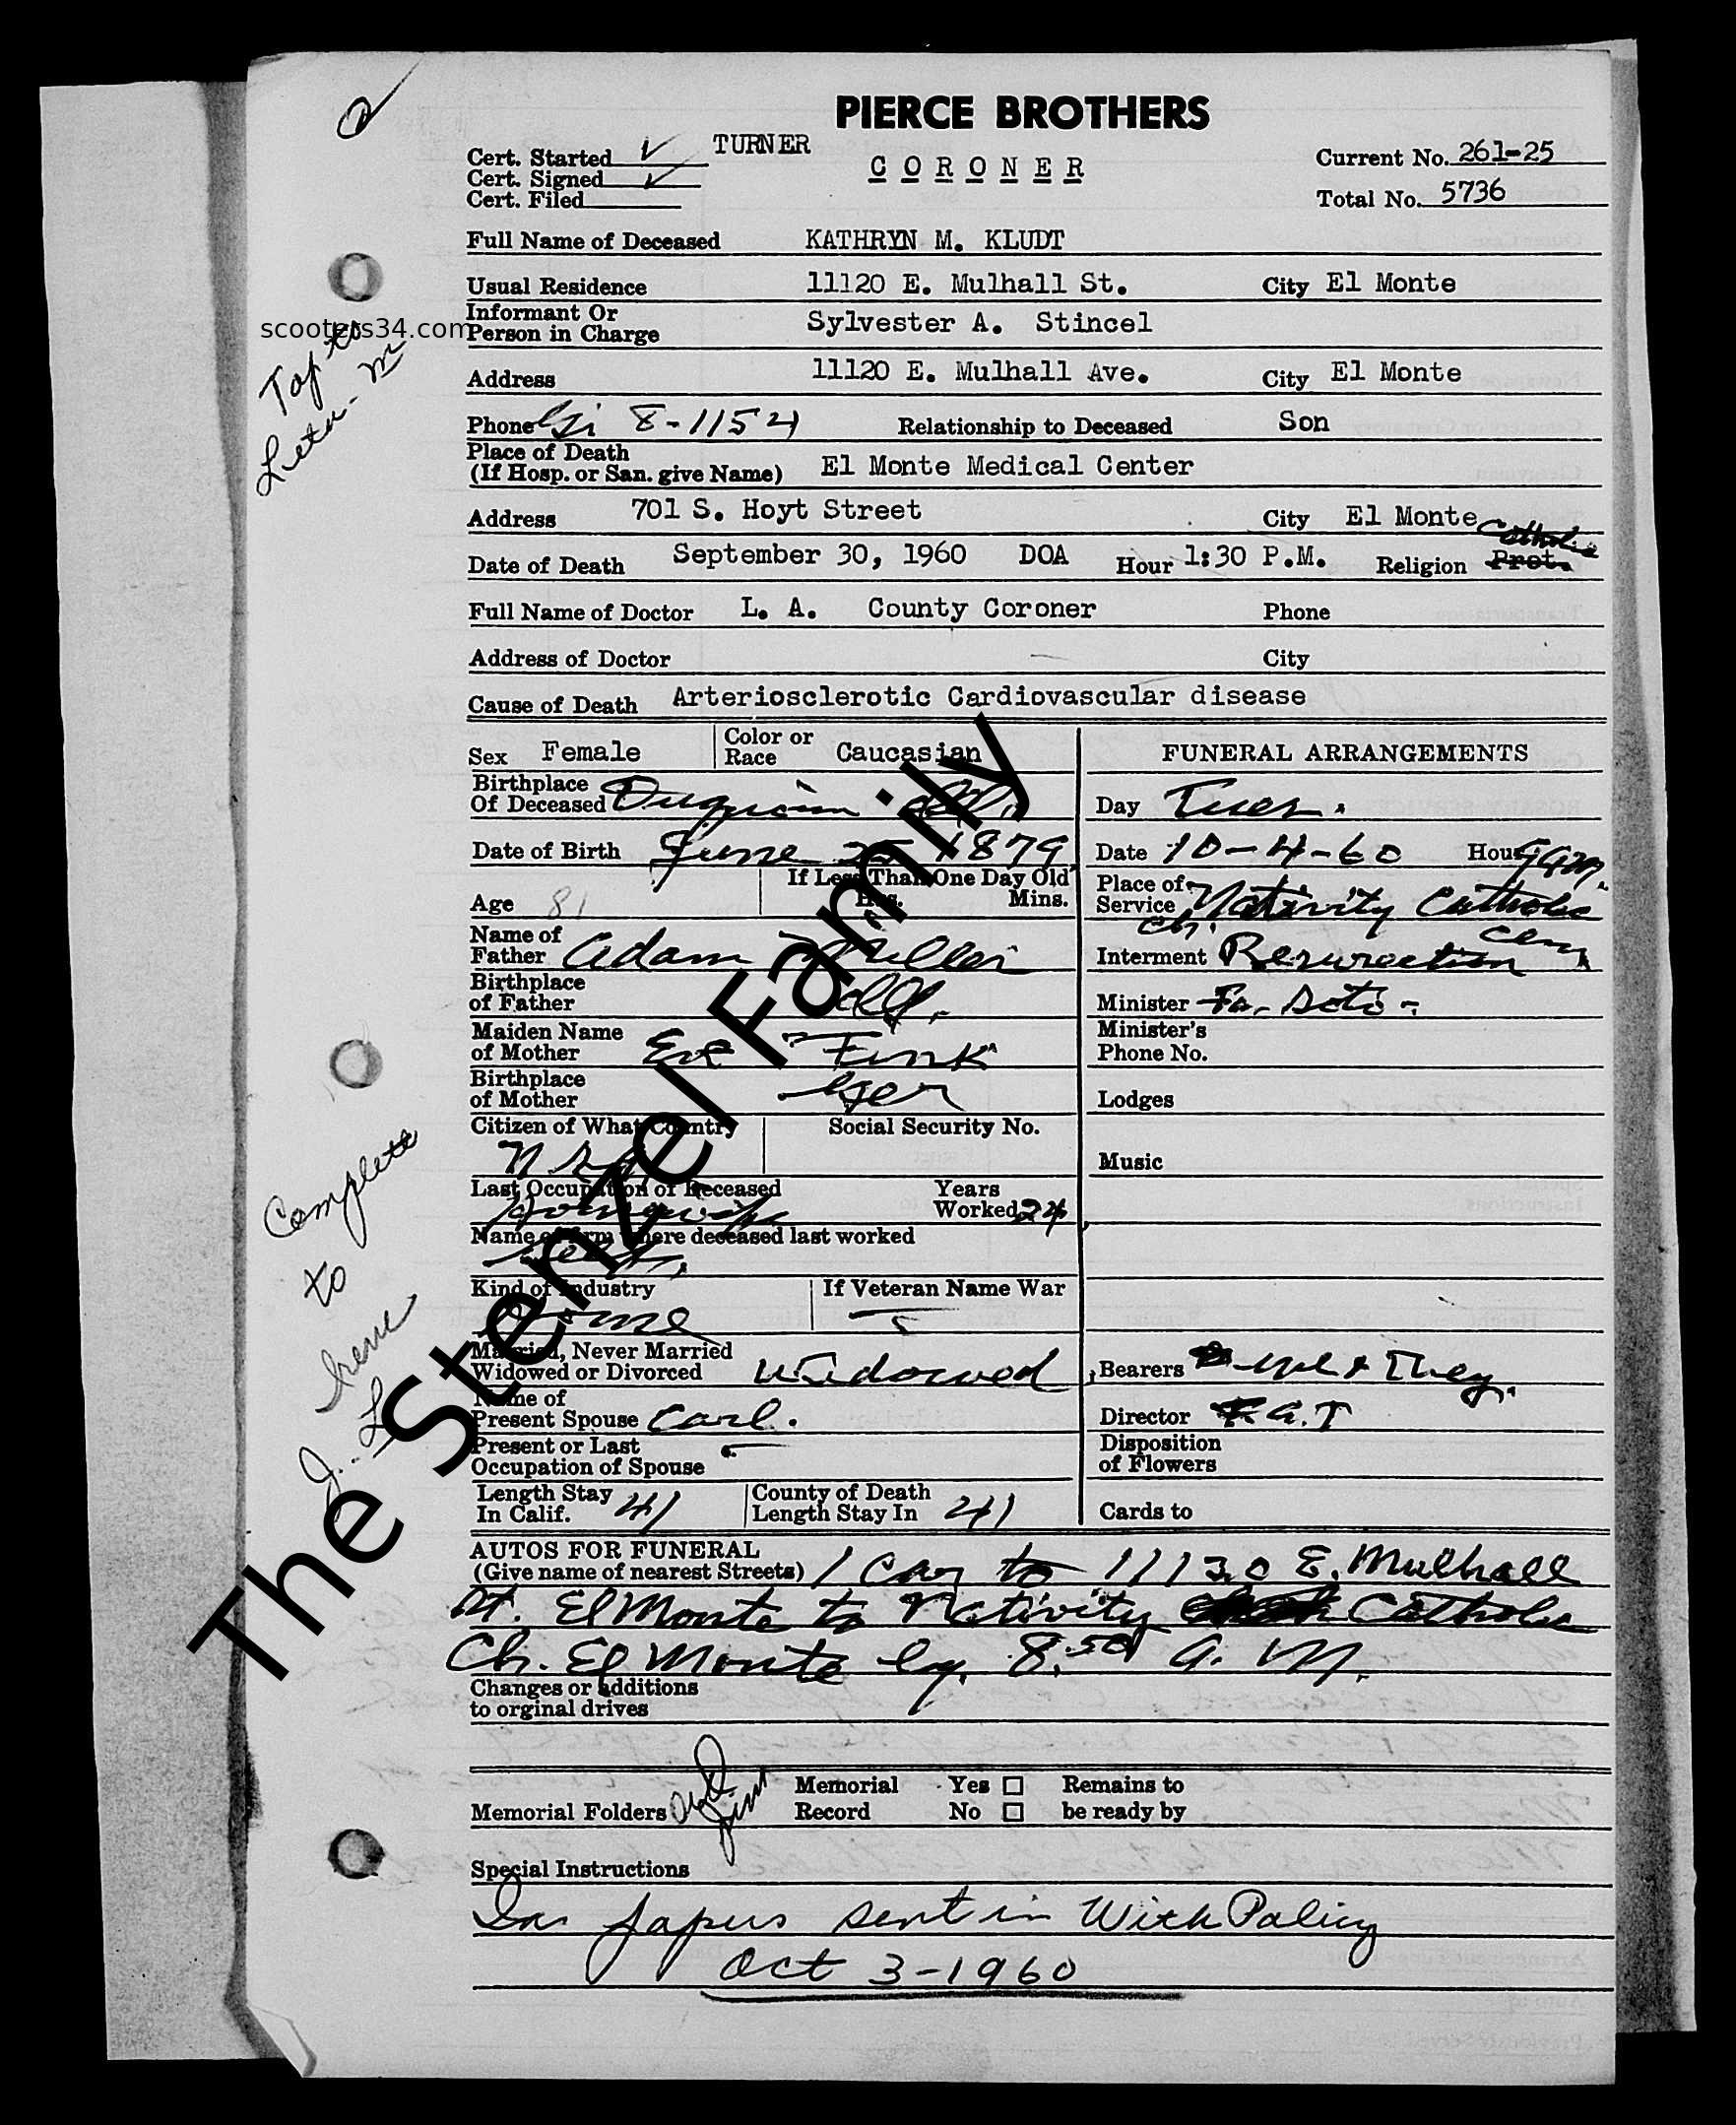 PIERCE BROTHERS
TURNER
CORONER
Cert. Started ✓
Cert. Signed ✓
Cert. Filed
Current No. 261-25
Total No. 5736
Full Name of Deceased KATHRYN M. KLUDT
Usual Residence 11120 E. Mulhall St. City El Monte
scooters34.com
Informant Or
Person in Charge Sylvester A. Stincel
Address 11120 E. Mulhall Ave. City El Monte
Phone Gi 8-1154 Relationship to Deceased Son
Place of Death
(If Hosp. or San. give Name) El Monte Medical Center
Address 701 S. Hoyt Street City El Monte
Date of Death September 30, 1960 DOA Hour 1:30 P.M. Religion Prot. Catholic
Full Name of Doctor L. A. County Coroner Phone
Address of Doctor City
Cause of Death Arteriosclerotic Cardiovascular disease
Sex Female Color or Race Caucasian
Birthplace
Of Deceased Ill.
Date of Birth June 25 1879
Age 81 If Less Than One Day Old
Hrs. Mins.
Name of
Father Adam Miller
Birthplace
of Father
Maiden Name
of Mother Eve Fink
Birthplace
of Mother Ger
Citizen of What Country Social Security No.
Last Occupation of Deceased Housewife Years
Worked 24
Name of Firm where deceased last worked
Kind of Industry Home If Veteran Name War
Married, Never Married
Widowed or Divorced Widowed
Name of
Present Spouse Carl.
Present or Last
Occupation of Spouse -
Length Stay
In Calif. 41
County of Death
Length Stay In 41
FUNERAL ARRANGEMENTS
Day Tues.
Date 10-4-60 Hour 9 am.
Place of
Service Nativity Catholic Ch.
Interment Resurrection Cem
Minister Fa. Soto -
Minister's
Phone No.
Lodges
Music
Bearers - We & They.
Director G.T
Disposition
of Flowers
Cards to
AUTOS FOR FUNERAL
(Give name of nearest Streets) 1 Car to 11130 E. Mulhall
St. El Monte to Nativity Catholic
Ch. El Monte by 8:50 A.M.
Changes or additions
to orginal drives
Memorial Folders Memorial
Record Yes No Remains to
be ready by
Special Instructions
Ins papers sent in With Policy
Oct 3-1960
Complete
to
Irene
The Stenzel Family